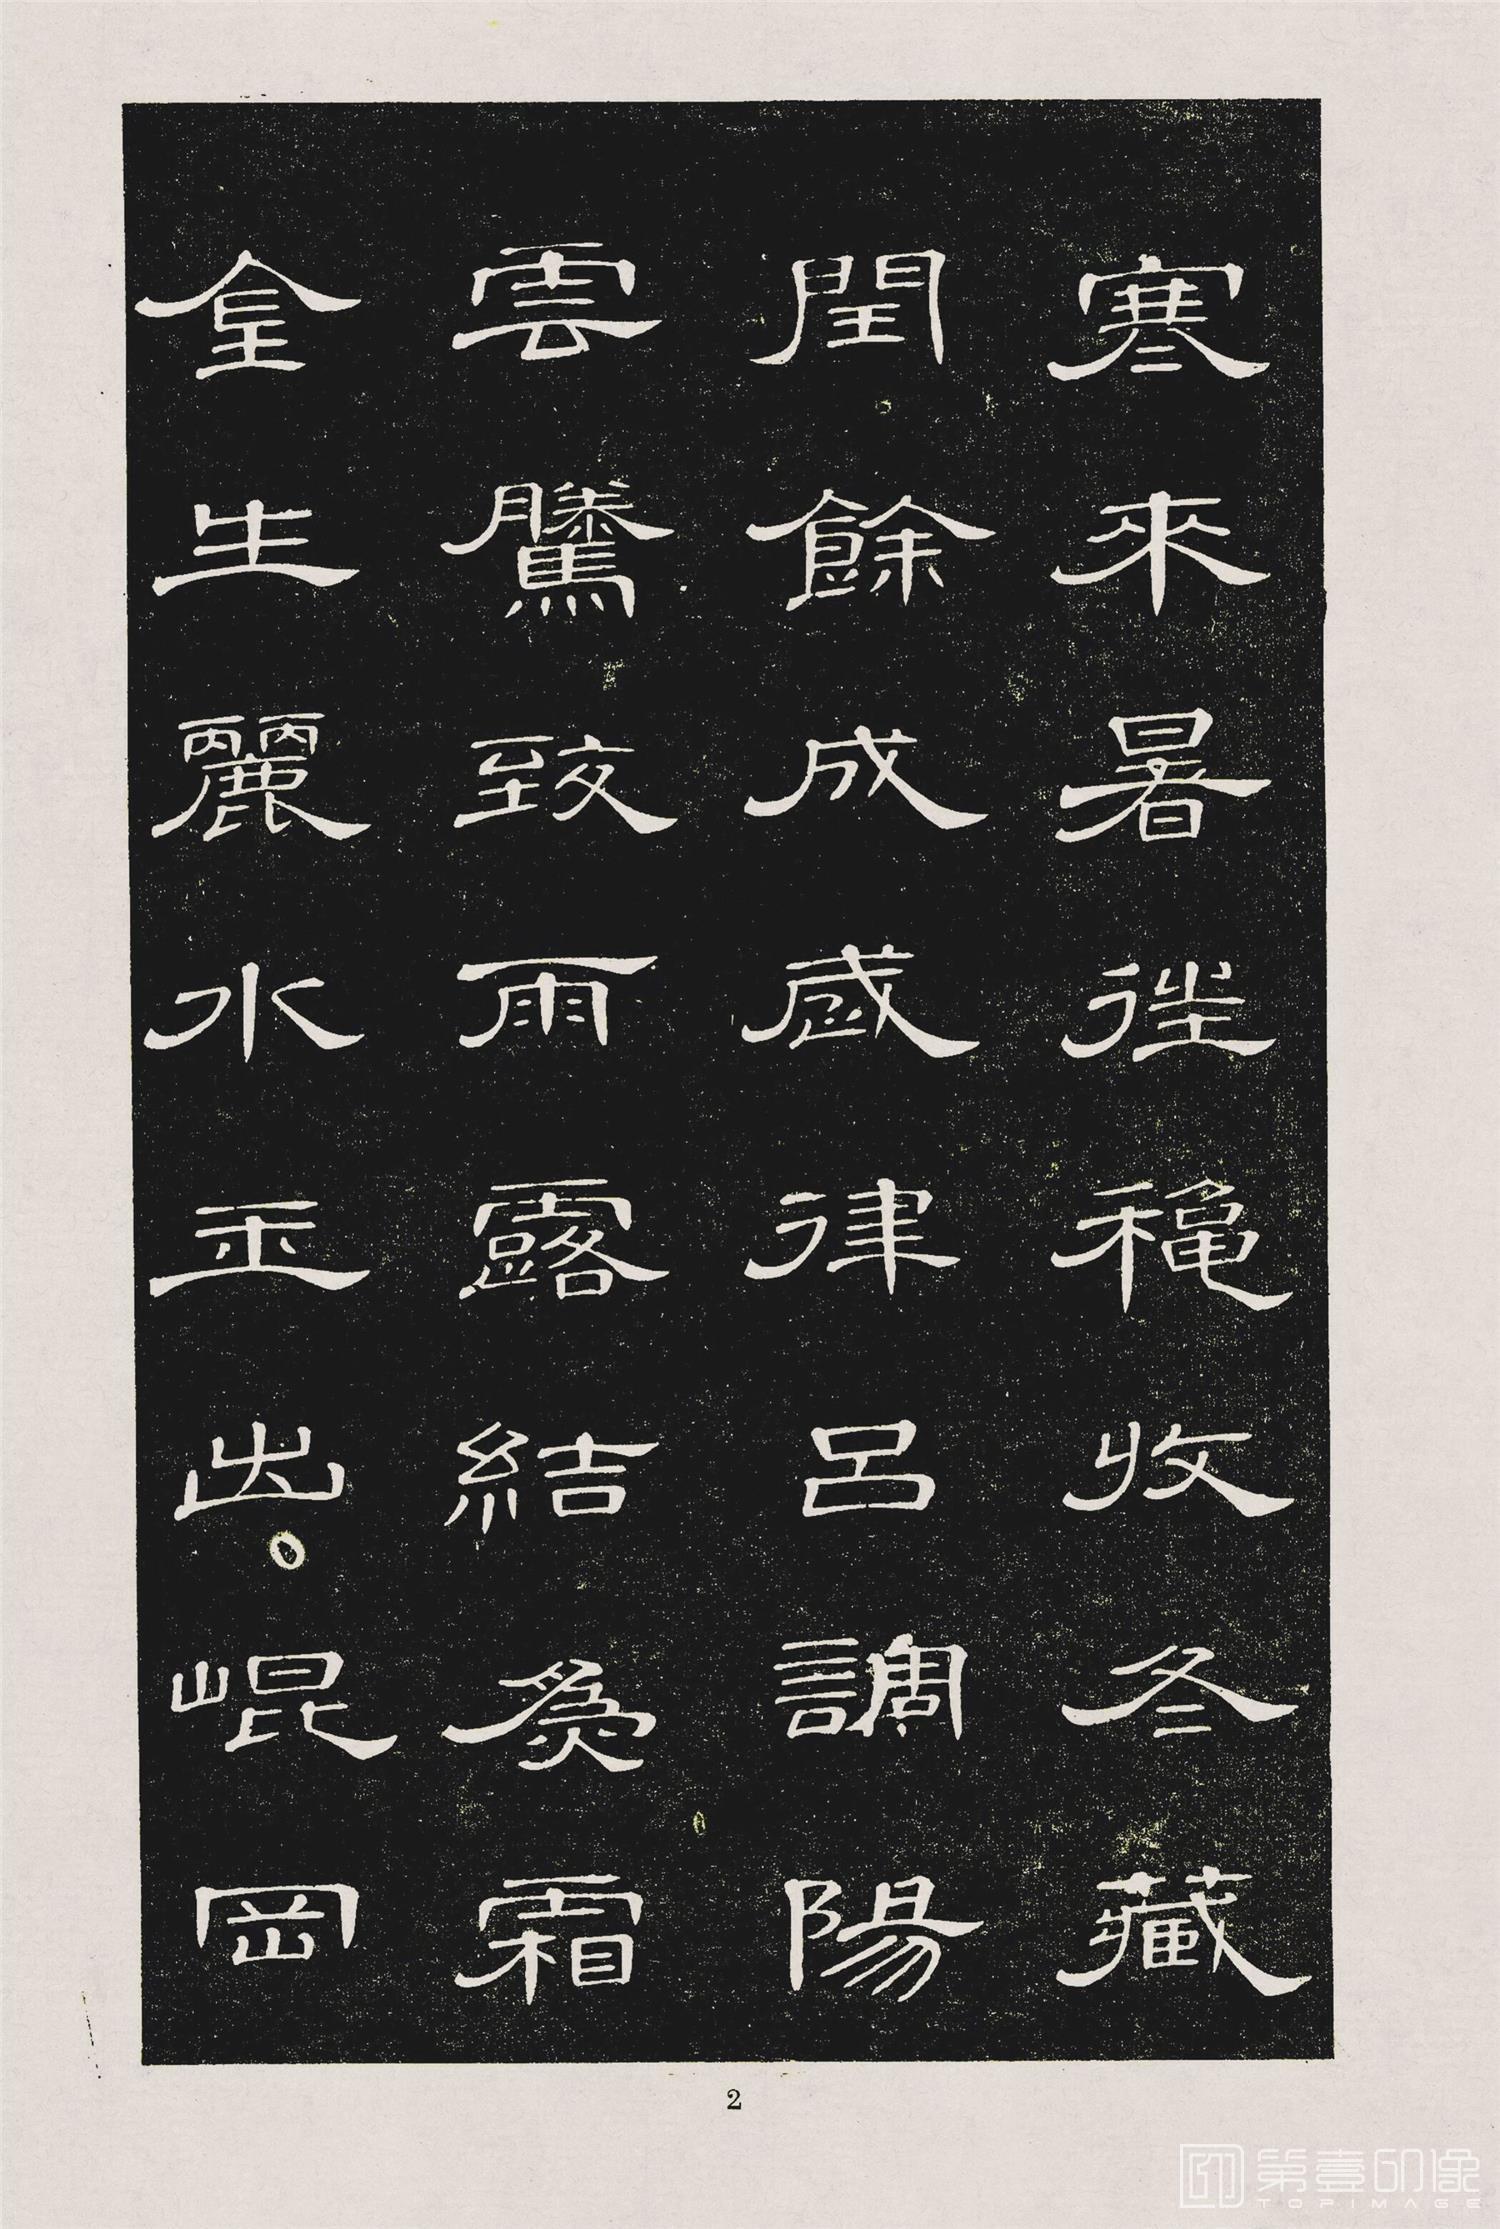 寒來暑往穐收冬藏
閏餘成歲律呂調陽
雲騰致雨露結爲霜
金生麗水玉出崐岡
2
第壹印像
TOPIMAGE